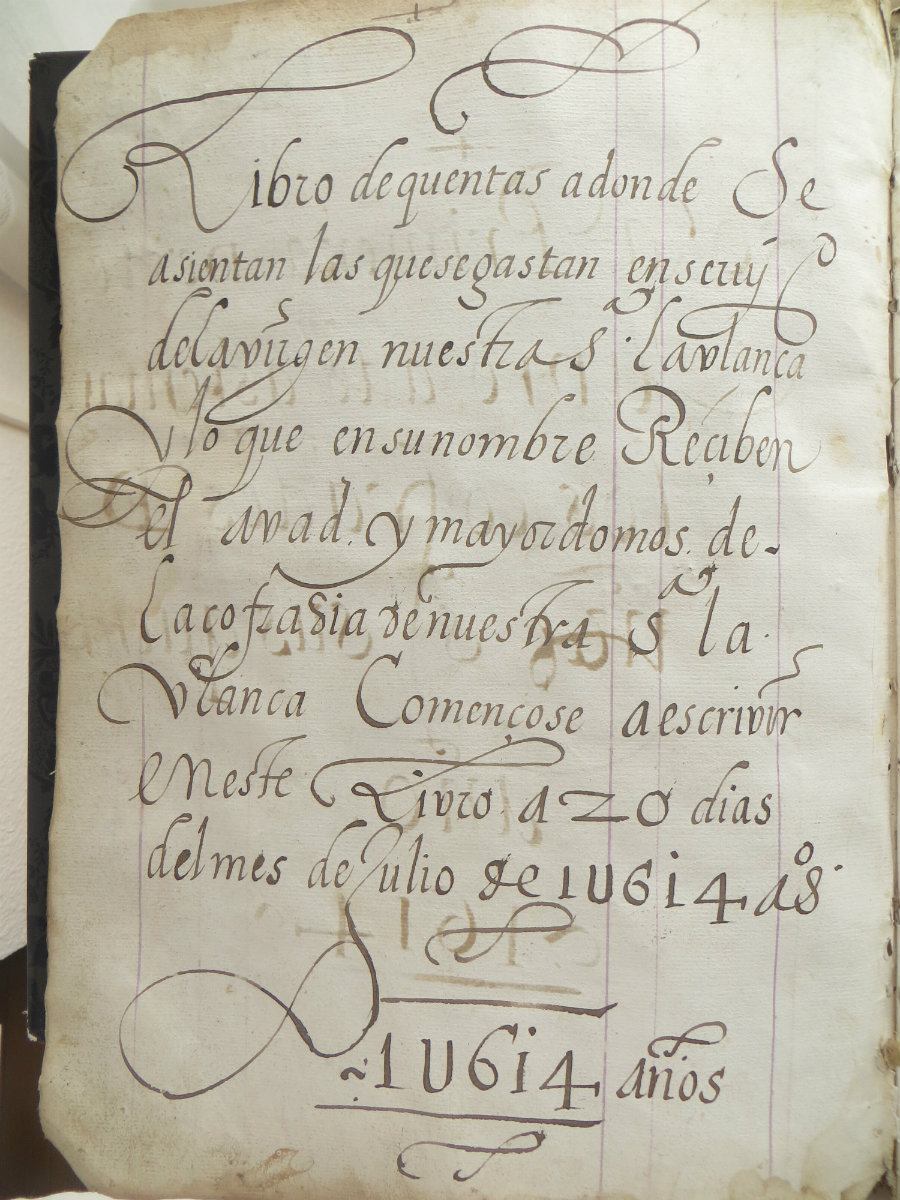 Libro de quentas adonde Se
asientan las que se gastan en seruiº
de la virgen nuestra Sª la vlanca
y lo que en su nombre Reçiben
el avad. y mayordomos. de
la cofradia de nuestra Sª la
vlanca Començose a escrivir
eneste Livro. a 20 dias
del mes de Julio de 1U614 aºs
1U614 años